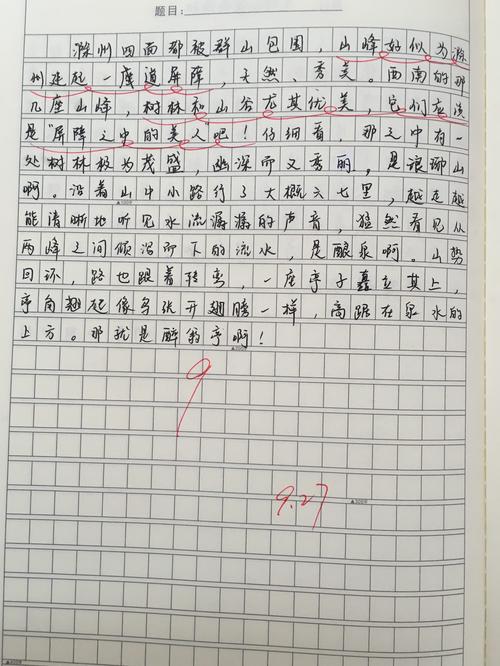 题目：
滁州四面都被群山包围，山峰好似为滁
州建起一座道屏障，天然、秀美。西南的那
几座山峰，树林和山谷尤其优美，它们应该
是“屏障之中的美人吧！仔细看，那之中有一
处树林极为茂盛，幽深而又秀丽，是琅琊山
啊。沿着山中小路行了大概六七里，越走越
能清晰地听见水流潺潺的声音，猛然看见从
两峰之间倾泻而下的流水，是酿泉啊。山势
回环，路也跟着转弯，一座亭子矗立其上，
亭角翘起像鸟张开翅膀一样，高踞在泉水的
上方。那就是醉翁亭啊！
9
9.27